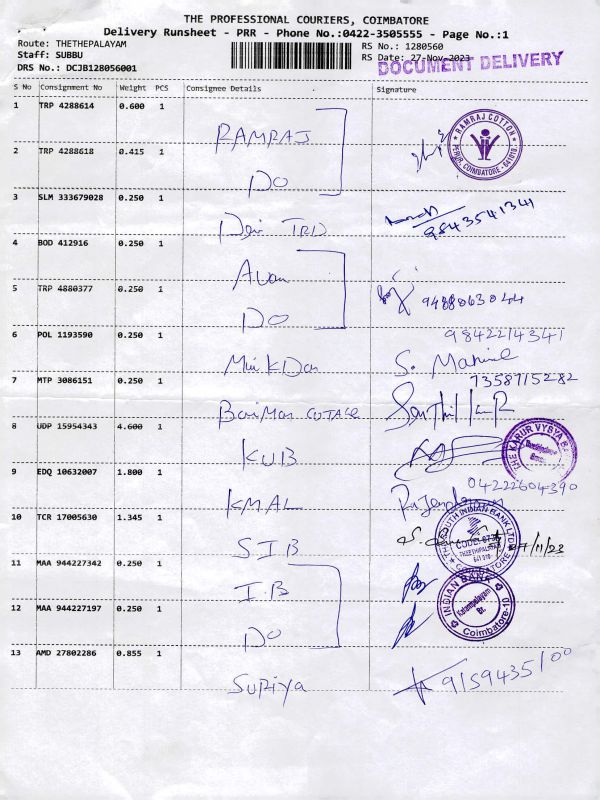 THE PROFESSIONAL COURIERS, COIMBATORE
Delivery Runsheet - PRR - Phone No.:0422-3505555 - Page No.:1
Route: THETHEPALAYAM
Staff: SUBBU
DRS No.: DCJB128056001
RS No.: 1280560
RS Date: 27-Nov-2023
DOCUMENT DELIVERY
S No Consignment No Weight PCS Consignee Details Signature
1 TRP 4288614 0.600 1 RAMRAJ
RAMRAJ COTTON
COIMBATORE
2 TRP 4288618 0.415 1 DO
3 SLM 333679028 0.250 1 Devi TRD
9843541341
4 BOD 412916 0.250 1
5 TRP 4880377 0.250 1 DO
9488063044
6 POL 1193590 0.250 1
9842214341
7 MTP 3086151 0.250 1
7358715282
8 UDP 15954343 4.600 1 KUB
THE KARUR VYSYA BA
9 EDQ 10632007 1.800 1 KMAL
04222604390
10 TCR 17005630 1.345 1 SIB
THE SOUTH INDIAN BANK LTD
COIMBATORE
27/11/23
11 MAA 944227342 0.250 1 I.B
INDIAN BANK
Coimbatore-10
12 MAA 944227197 0.250 1 DO
13 AMD 27802286 0.855 1 SUPIYA
9159435100